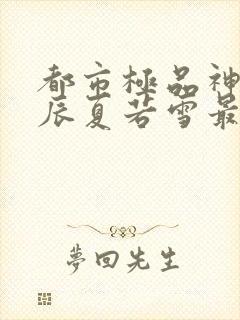 都市極品神
辰夏若雪最
夢回先生